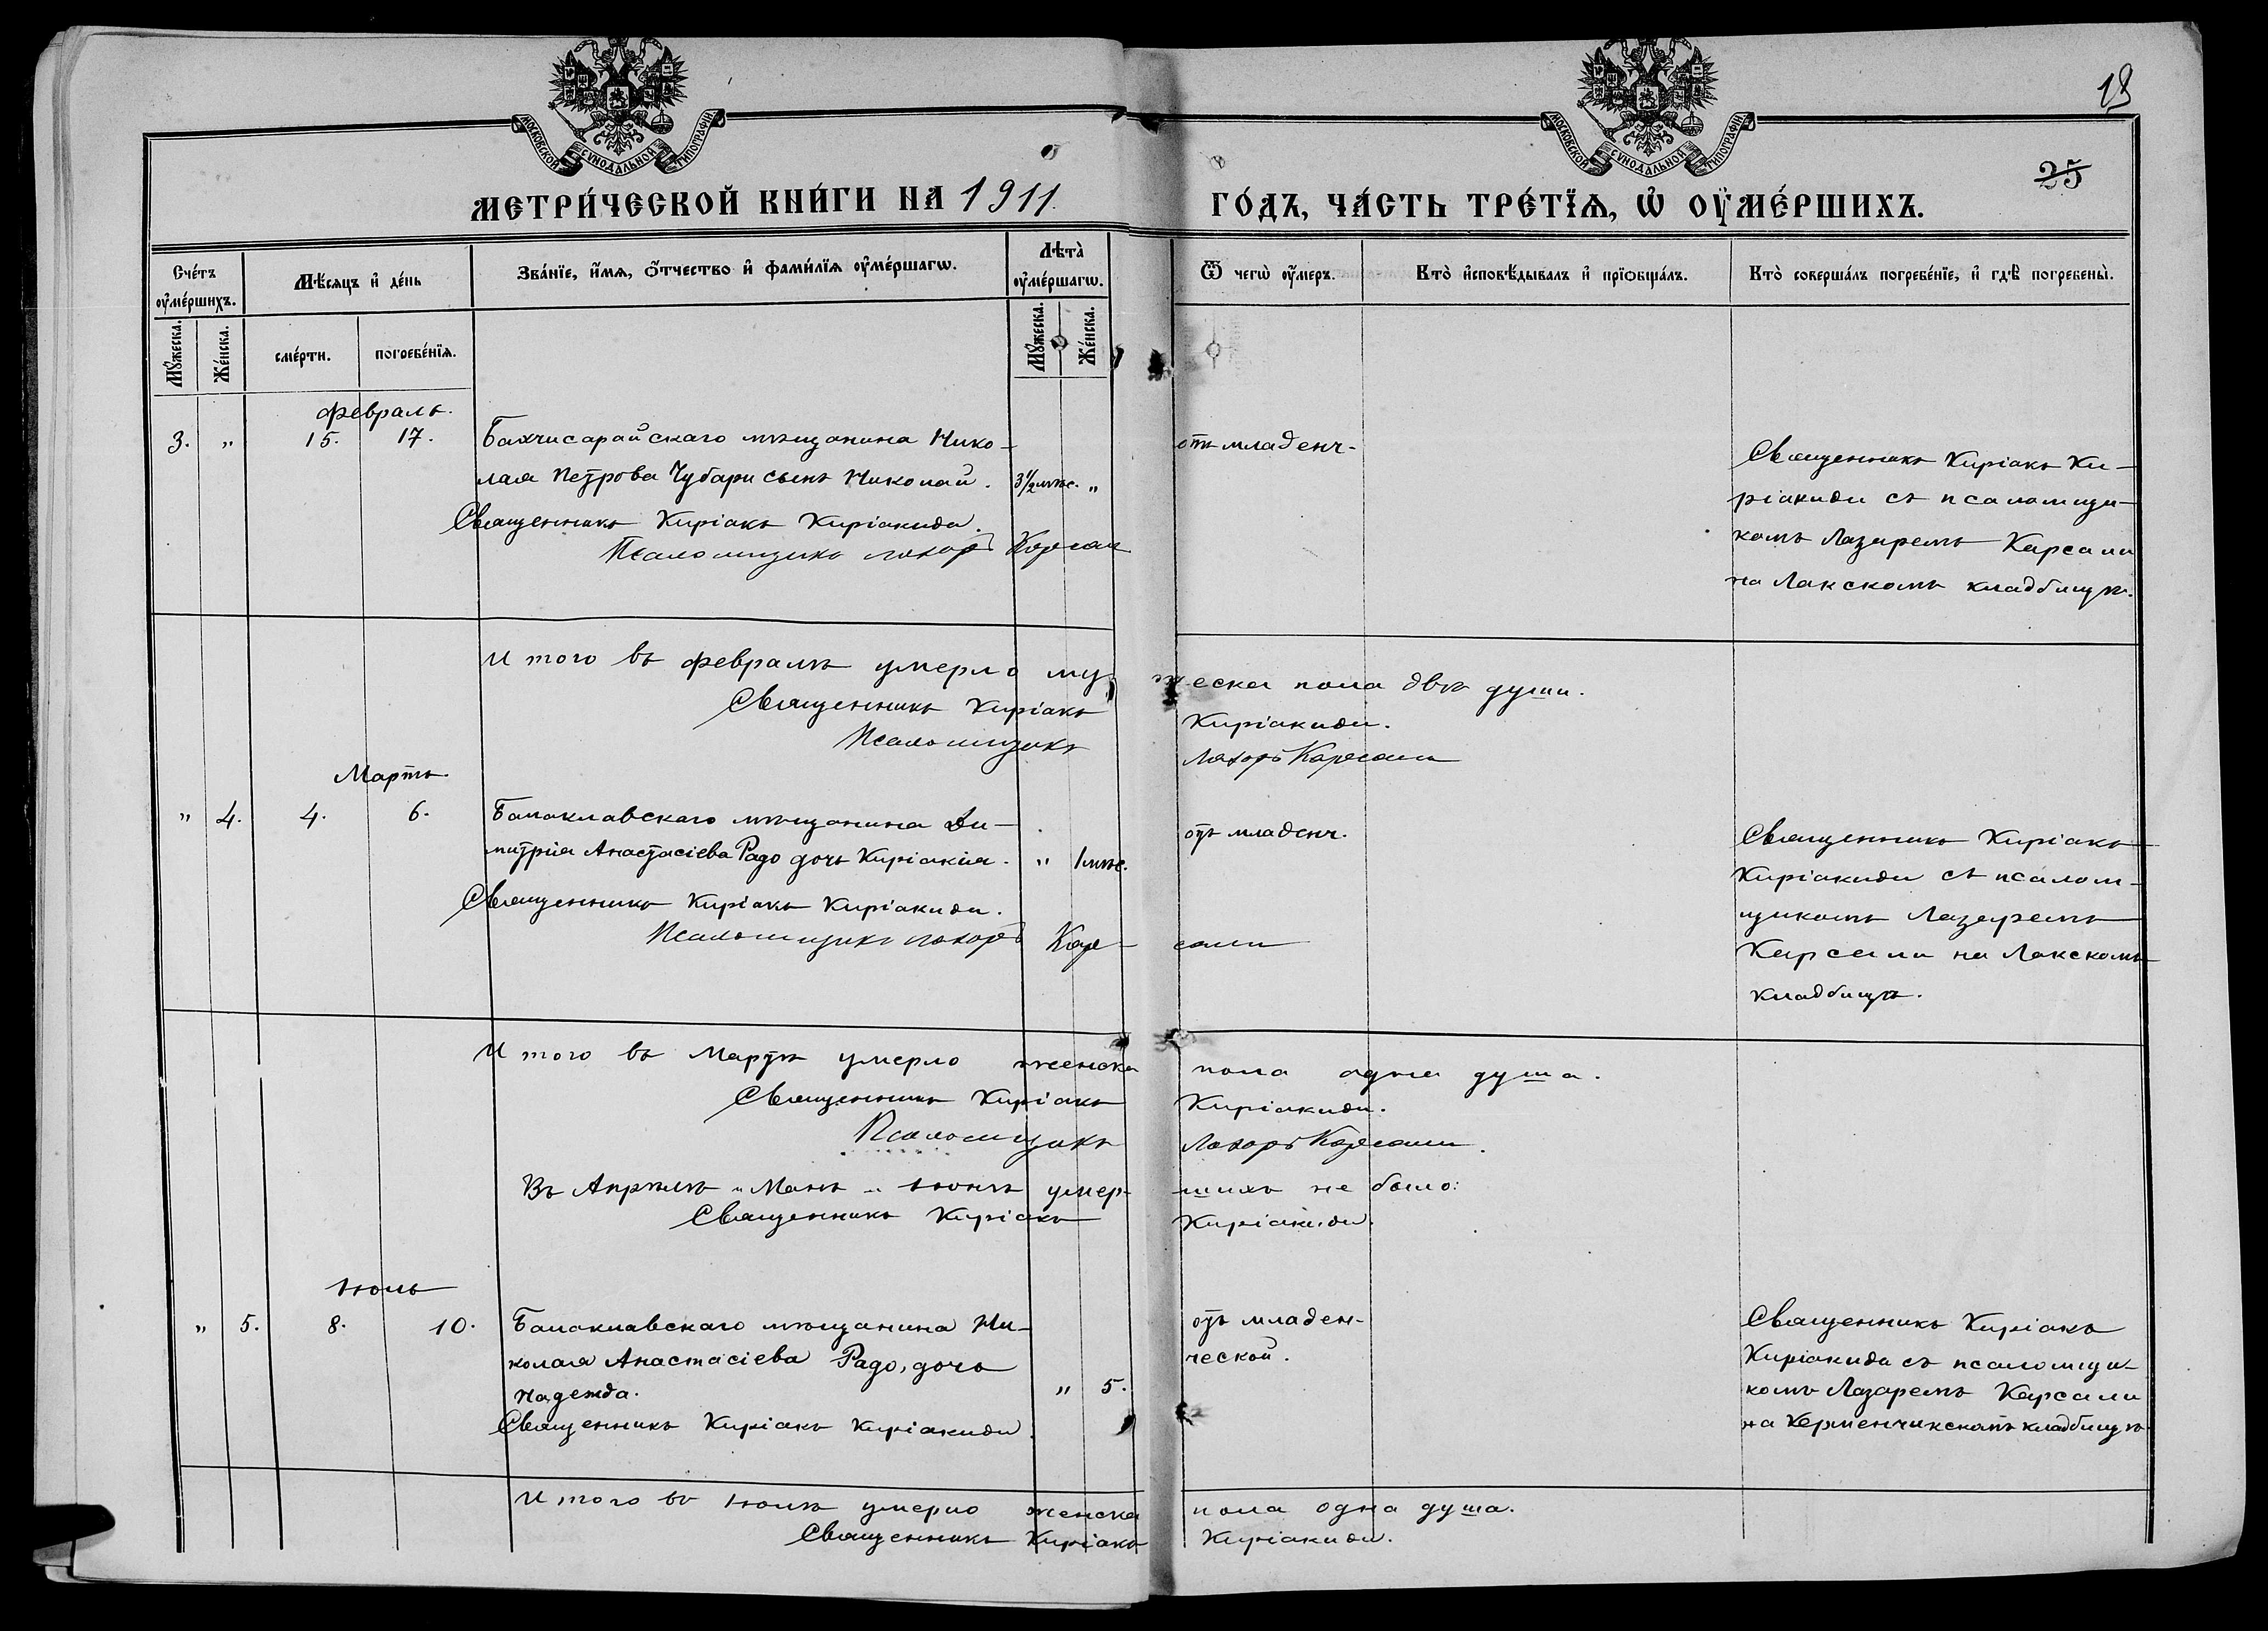 МОСКОВСКОЙ СѴНОДАЛЬНОЙ ТИПОГРАФІИ
МОСКОВСКОЙ СѴНОДАЛЬНОЙ ТИПОГРАФІИ
19
25
МЕТРИ́ЧЕСКОЙ КНИ́ГИ НА 1911
ГО́ДЪ, ЧА́СТЬ ТРЕ́ТЇѦ, Ѡ҆ ОУ҆МЕ́РШИХЪ.
Сче́тъ оу҆ме́ршихъ.
Мѣ́сяцъ и҆ де́нь
Зва́нїе, и҆́мѧ, ѻ҆́тчество и҆ фами́лїѧ оу҆ме́ршагѡ.
Лѣта̀ оу҆ме́ршагѡ.
Ѿ чегѡ̀ оу҆́меръ.
Кто̀ и҆сповѣ́дывалъ и҆ прїѡбща́лъ.
Кто̀ соверша́лъ погребе́нїе, и҆ гдѣ̀ погребены̀.
Мꙋ́жеска.
Же́нска.
сме́рти.
погребе́нїѧ.
Мꙋ́жеска.
Же́нска.
Февраль.
3. „ 15. 17. Бахчисарайскаго мѣщанина Нико-
лая Петрова Чубари сынъ Николай. 3½ мѣс. „
Священникъ Киріакъ Киріакиди.
Псаломщикъ Лазарь Карсали
отъ младенч.
Священникъ Киріакъ Ки-
ріакиди съ псаломщи-
комъ Лазаремъ Карсали
на Лакскомъ кладбищѣ.
Итого въ февралѣ умерло мужеска пола двѣ души.
Священникъ Киріакъ Киріакиди.
Псаломщикъ Лазарь Карсали
Мартъ.
„ 4. 4. 6. Балаклавскаго мѣщанина Ди-
митрія Анастасіева Радо дочь Киріакія. „ 1 мѣс.
Священникъ Киріакъ Киріакиди.
Псаломщикъ Лазарь Карсали
отъ младенч.
Священникъ Киріакъ
Киріакиди съ псалом-
щикомъ Лазаремъ
Карсали на Лакскомъ
кладбищѣ.
Итого въ Мартѣ умерло женска пола одна душа.
Священникъ Киріакъ Киріакиди.
Псаломщикъ Лазарь Карсали.
Въ Апрѣлѣ, Маѣ и Іюнѣ умершихъ не было:
Священникъ Киріакъ Киріакиди.
Іюль
„ 5. 8. 10. Балаклавскаго мѣщанина Ни-
колая Анастасіева Радо, дочь
Надежда. „ 5.
Священникъ Киріакъ Киріакиди.
отъ младен-
ческой.
Священникъ Киріакъ
Киріакиди съ псаломщи-
комъ Лазаремъ Карсали
на Керменчикскомъ кладбищѣ.
Итого въ Іюлѣ умерло женска пола одна душа.
Священникъ Киріакъ Киріакиди.